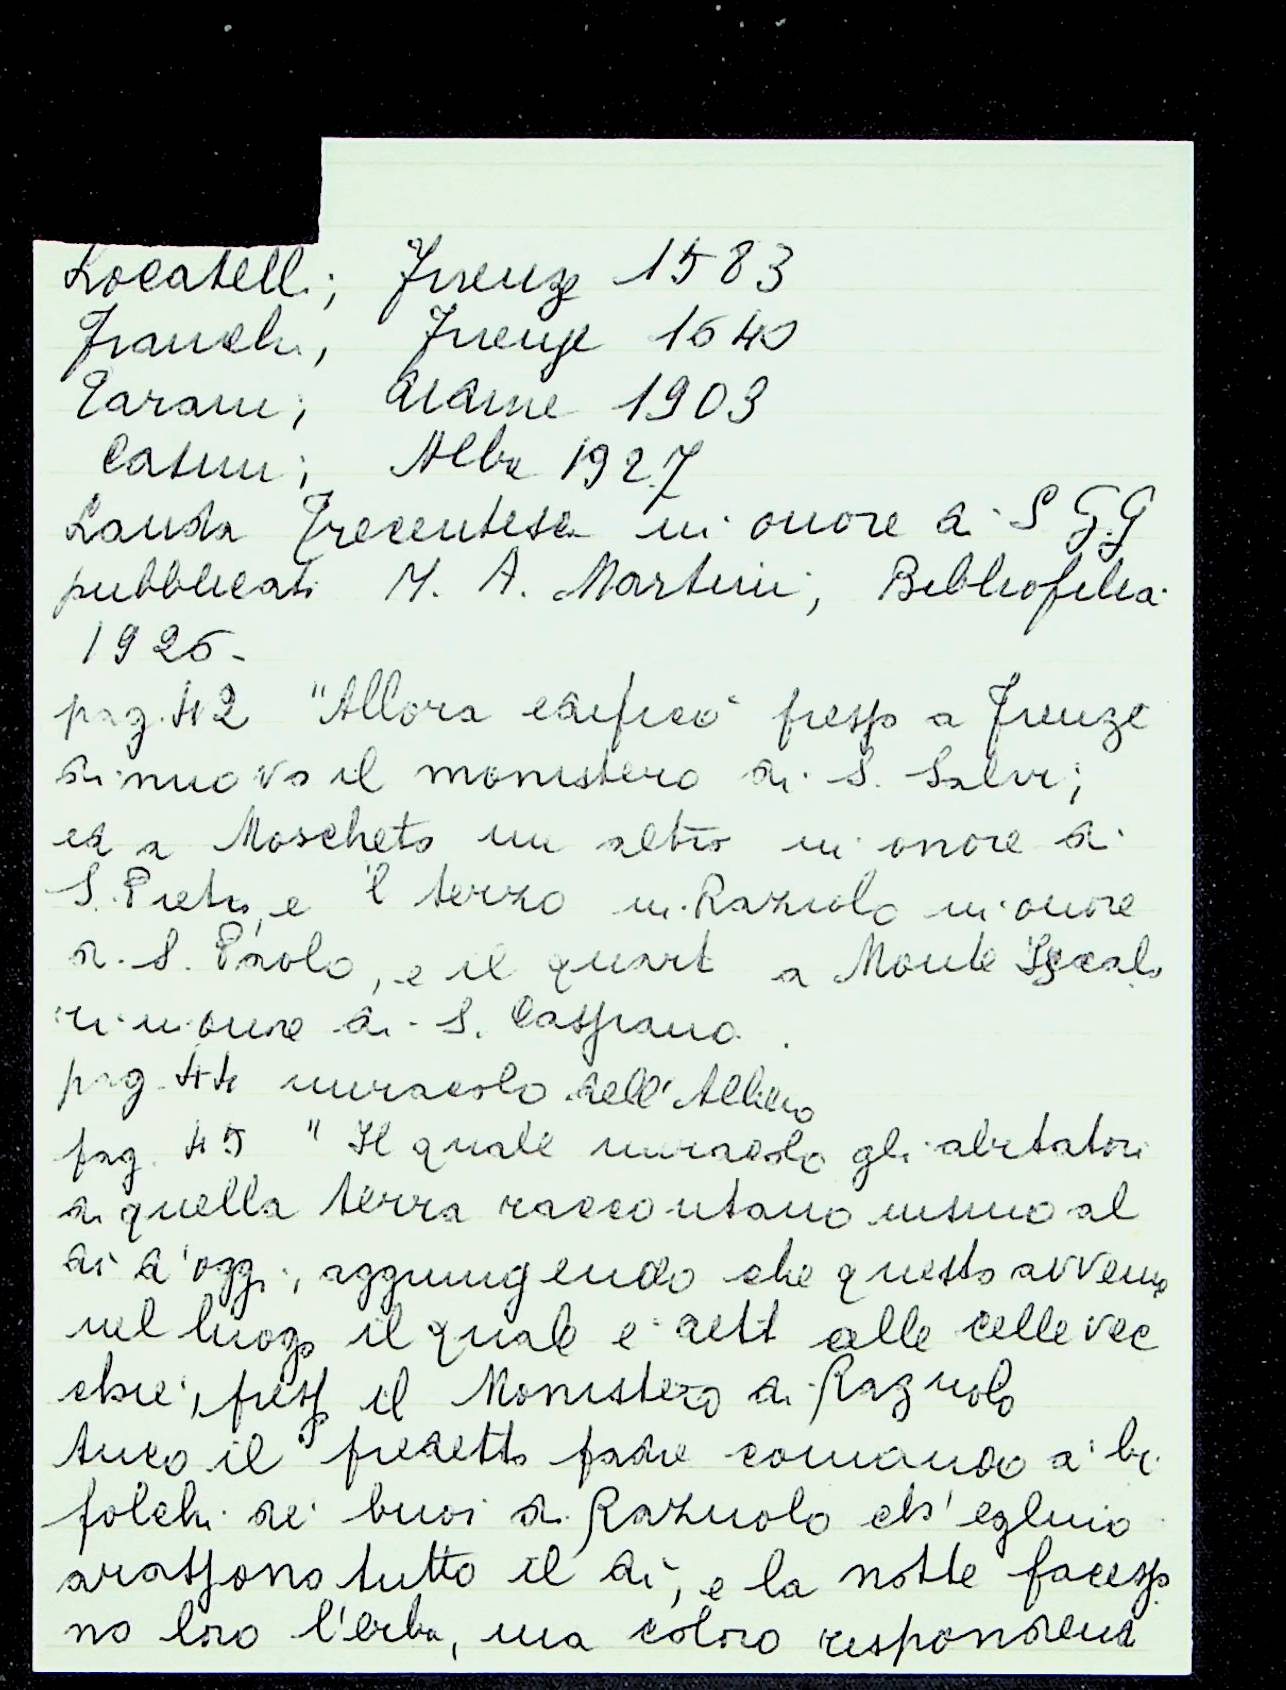 Locatelli; Firenze 1583
Franchi, Firenze 1640
Tarani; Udine 1903
Casini; Alba 1927
Lauda Trecentesca in onore di S G.G
pubblicati M. A. Martini, Bibliofilia
1926-
pag. 42 "Allora edificò presso a Firenze
di nuovo il monistero di S. Salvi;
ed a Moscheto un altro in onore di
S. Pietro, e 'l terzo in Razuolo in onore
di S. Paolo, e il quart a Monte Scala
ri in onore di S. Cassiano.
pag. 44 miracolo dell'Albero
pag. 45 "Il quale miracolo gli abitatori
di quella terra raccontano insino al
dì d'oggi, aggiungendo che questo avvenne
nel luogo il quale è dett alle celle vec
chie, presso il Monistero di Razuolo
Anco il predetto padre comando a' bi
folchi de' buoi di Razuolo ch'eglino
arassono tutto il dì, e la notte facesso
no loro l'erba, ma coloro respondend